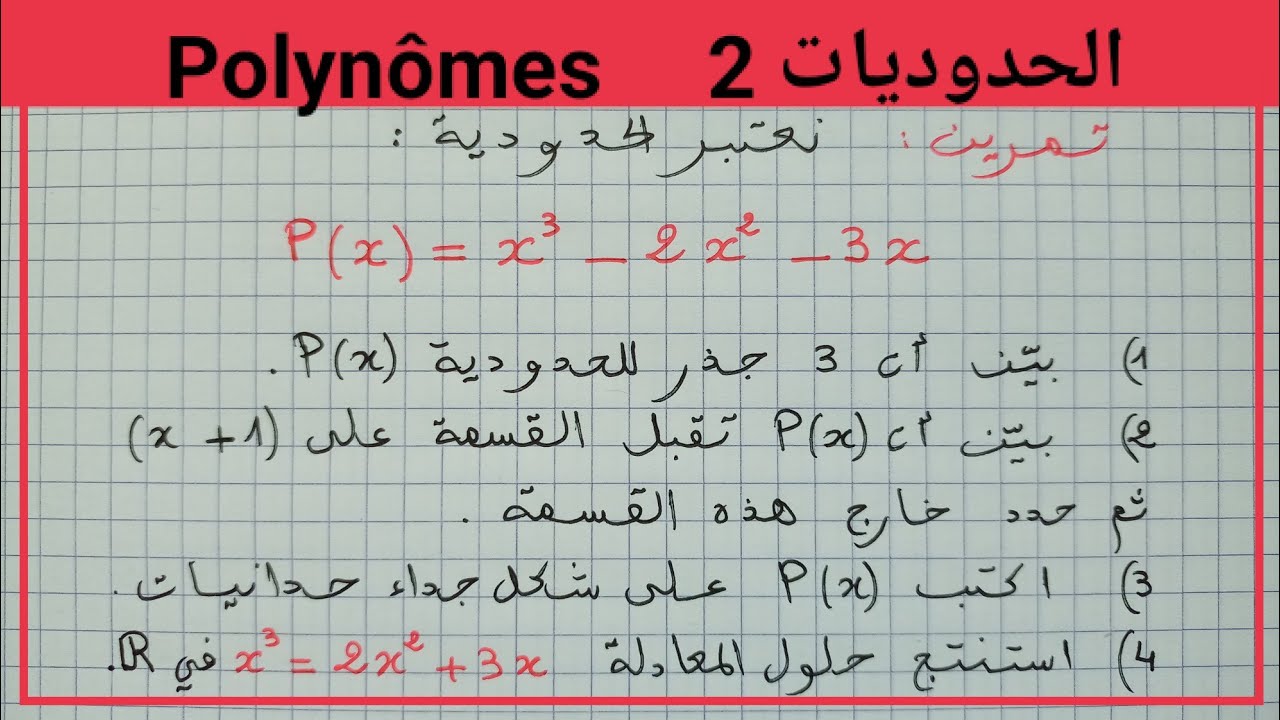 Polynômes 2 الحدوديات
تمرين : نعتبر الحدودية :
P(x) = x³ - 2x² - 3x
1) بيّن أن 3 جذر للحدودية P(x) .
2) بيّن أن P(x) تقبل القسمة على (x + 1)
ثم حدد خارج هذه القسمة .
3) اكتب P(x) على شكل جداء حدانيات .
4) استنتج حلول المعادلة x³ = 2x² + 3x في ℝ.